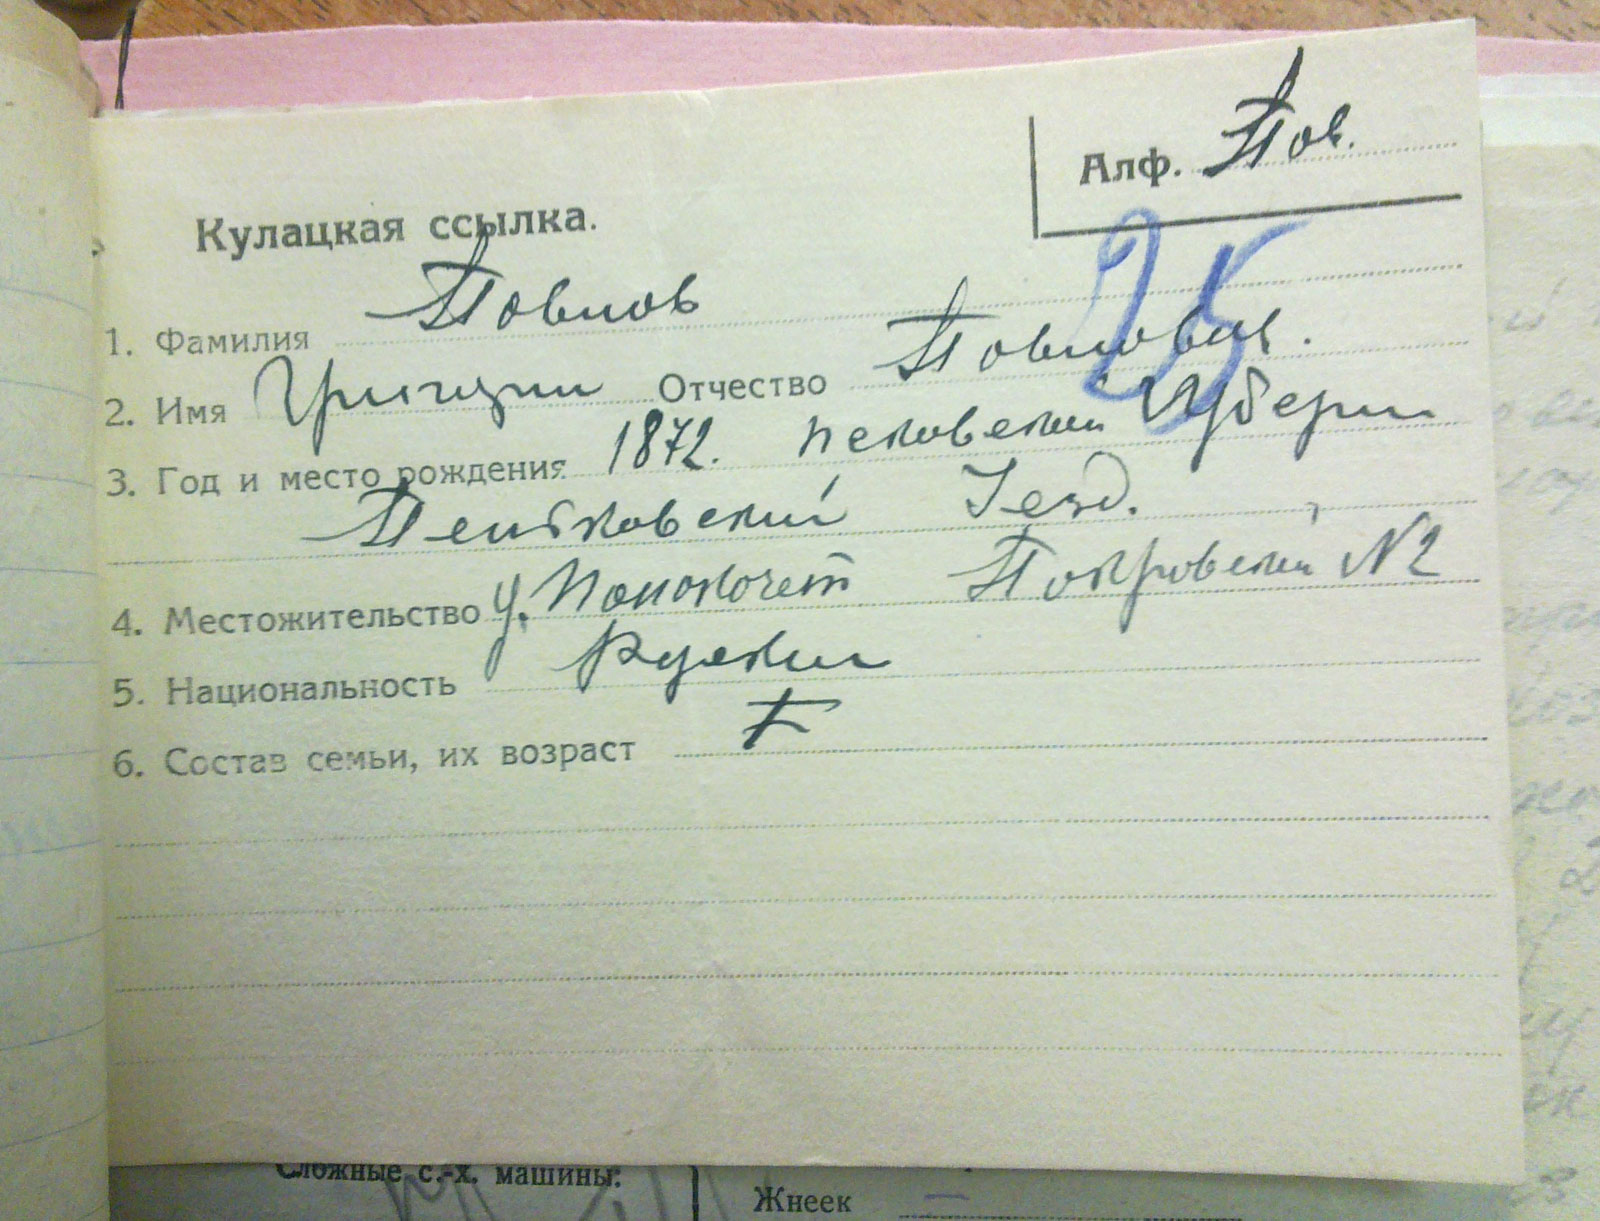 Алф. Пов.
Кулацкая ссылка.
25
1. Фамилия Повлов
2. Имя Григорий Отчество Повлович.
3. Год и место рождения 1872. Псковский Губерни
Уезд.
4. Местожительство Покровский №2
5. Национальность Руский
6. Состав семьи, их возраст
Сложные с.-х. машины:
Жнеек